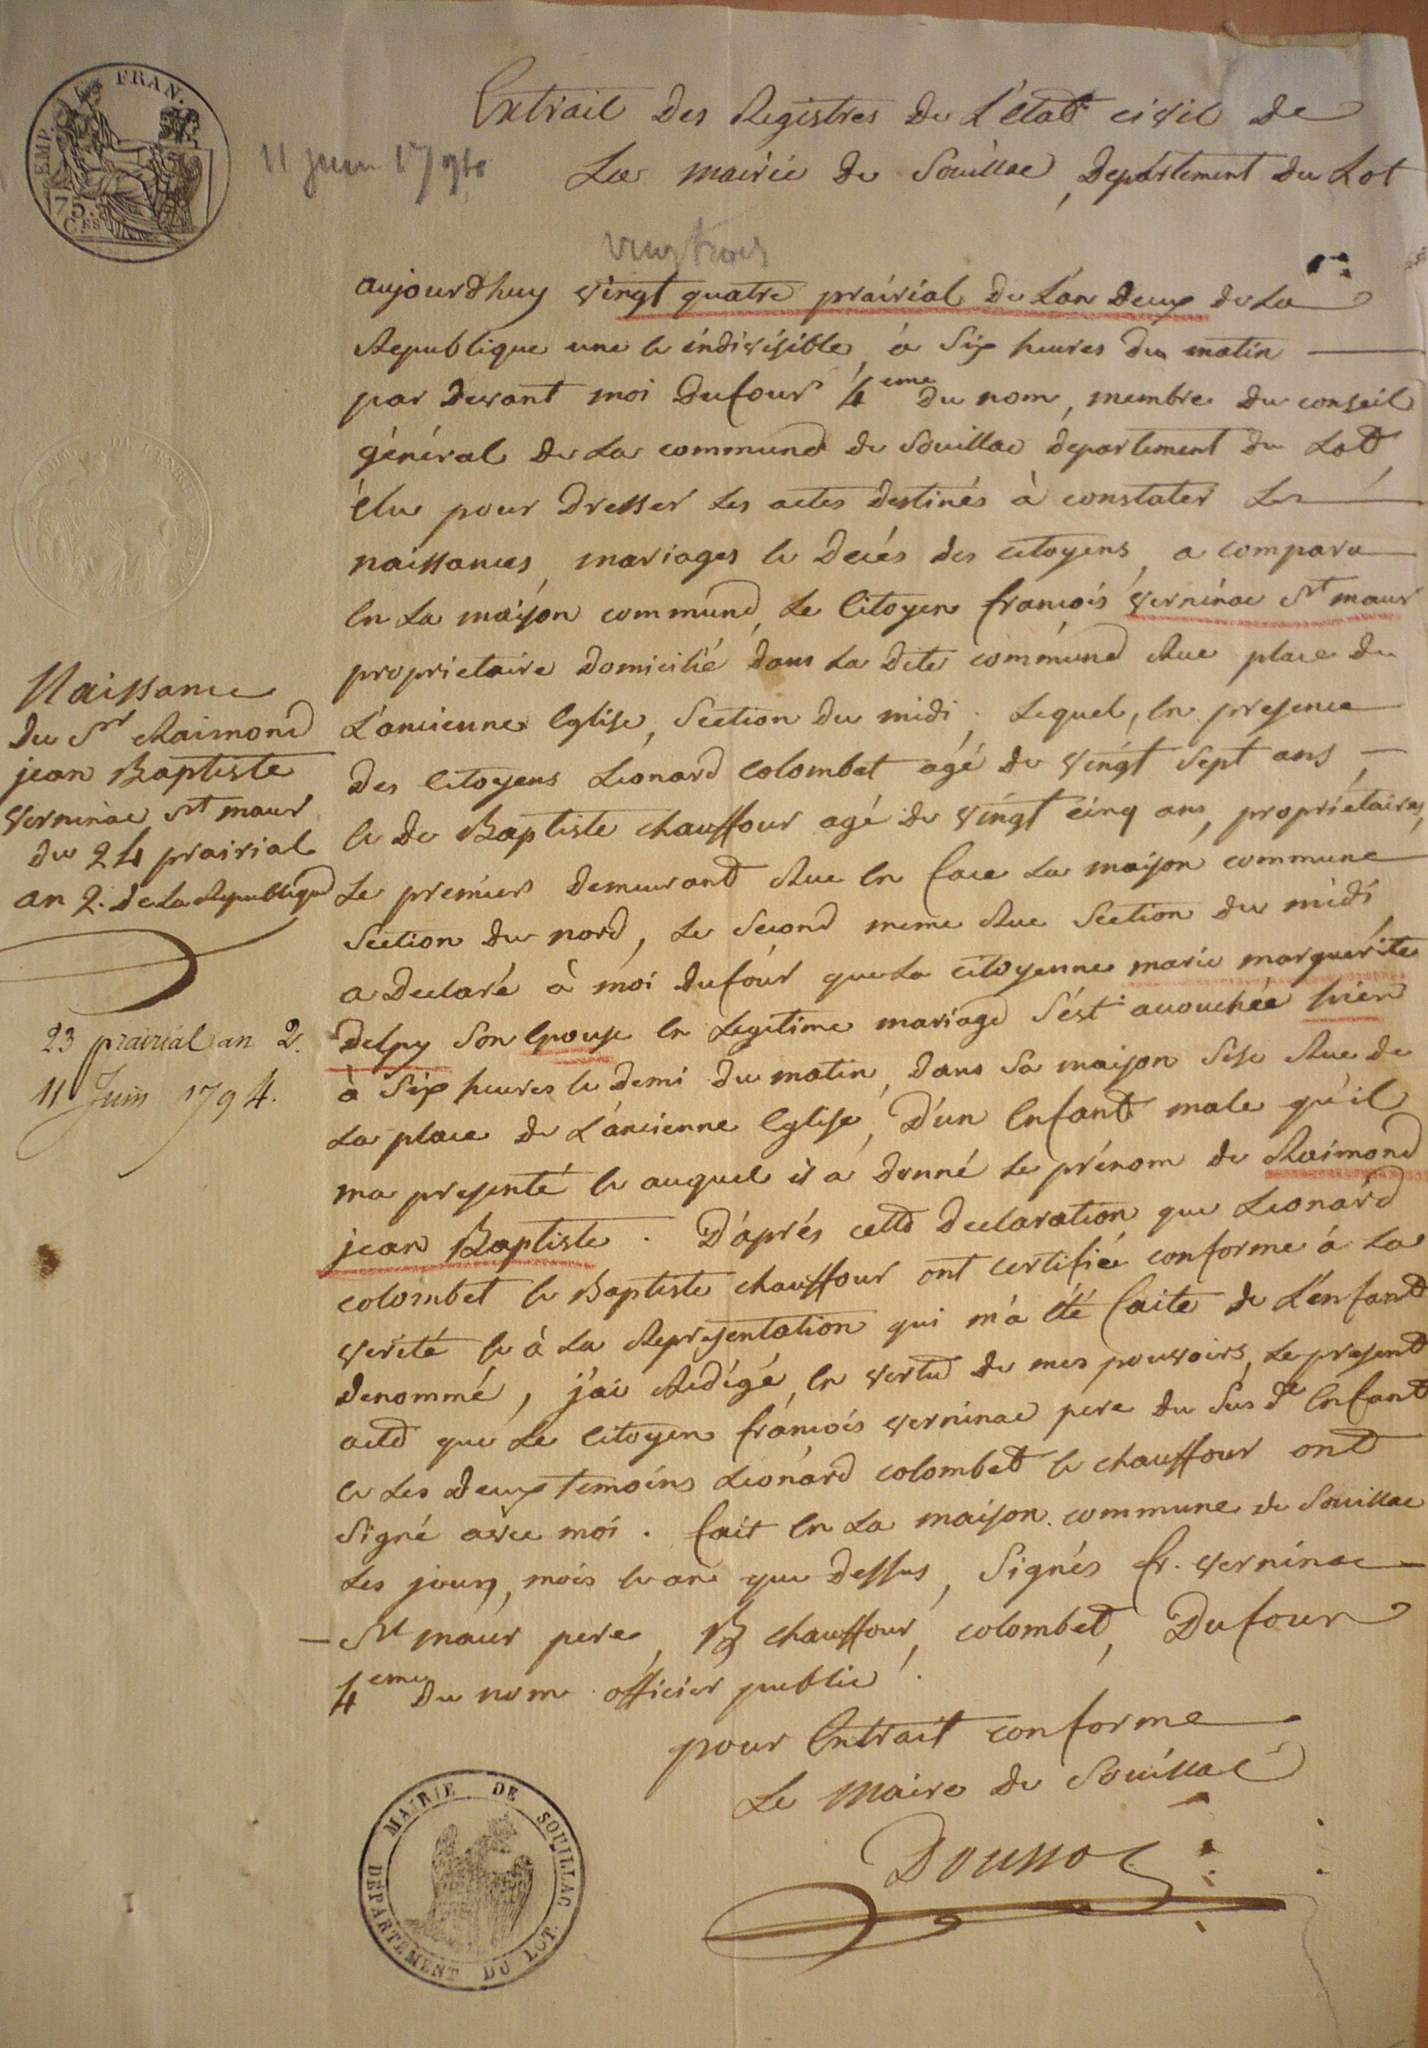 EMP. FRAN.
75. C.ES
11 juin 1794
Extrait des Registres de L'état civil de
La mairie de Souillac, Département du Lot
vingt trois
aujourdhuy vingt quatre prairial de L'an deux de La
Republique une et indivisible, à Six heures du matin
par devant moi Dufour 4eme du nom, membre du conseil
général de La commune de Souillac departement du Lot,
élu pour dresser Les actes destinés à constater Les
naissances, mariages et décés des citoyens, a comparu
en La maison commune, Le Citoyen françois Verninac St maur
proprietaire domicilié dans La dite commune Rue place de
L'ancienne Eglise, Section du midi, Lequel, en presence
des Citoyens Léonard Colombet agé de vingt Sept ans,
et de Baptiste chauffour agé de vingt cinq ans, propriétaires,
Le premier demeurant Rue en face La maison commune
Section du nord, Le Second meme Rue Section du midi,
a declaré à moi Dufour que La citoyenne marie marguérite
Delpy Son épouse en Legitime mariage S'est accouchée hier
à Six heures et demi du matin, dans Sa maison Sise Rue de
La place de L'ancienne Eglise, d'un Enfant male qu'il
ma presenté et auquel il a donné Le prénom de Raimond
jean Baptiste. D'aprés cette declaration que Léonard
colombet et Baptiste chauffour ont certifiée conforme à La
verité et à La Représentation qui m'a été faite de L'enfant
denommé, j'ai Rédigé, en vertu de mes pouvoirs, Le present
acte que Le citoyen françois verninac pere du Sus dt Enfant
et Les deux temoins Léonard colombet et chauffour ont
Signé avec moi. fait en La maison commune de Souillac
Les jour, mois et an que dessus, Signés fr. verninac
St maur pere, B chauffour, colombet, Dufour
4eme du nom officier public.
pour Extrait conforme
Le Maire de Souillac
Naissance
du Sr Raimond
jean Baptiste
Verninac St maur
du 24 prairial
an 2. de La Republique
23 prairial an 2.
11 Juin 1794.
MAIRIE DE SOUILLAC
DÉPARTEMENT DU LOT.